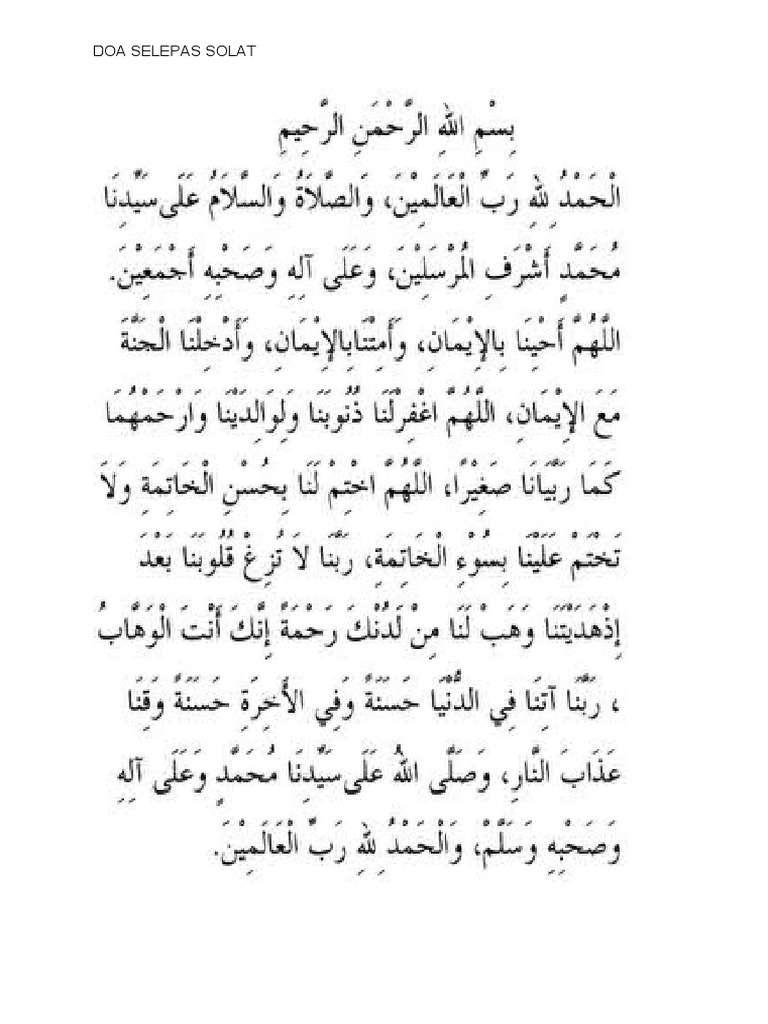 DOA SELEPAS SOLAT
بِسْمِ اللهِ الرَّحْمَنِ الرَّحِيمِ
الْحَمْدُ لِلهِ رَبِّ الْعَالَمِيْنَ، وَالصَّلَاةُ وَالسَّلَامُ عَلَى سَيِّدِنَا
مُحَمَّدٍ أَشْرَفِ الْمُرْسَلِيْنَ، وَعَلَى آلِهِ وَصَحْبِهِ أَجْمَعِيْنَ.
اللَّهُمَّ أَحْيِنَا بِالإِيْمَانِ، وَأَمِتْنَابِالإِيْمَانِ، وَأَدْخِلْنَا الْجَنَّةَ
مَعَ الإِيْمَانِ، اللَّهُمَّ اغْفِرْلَنَا ذُنُوبَنَا وَلِوَالِدَيْنَا وَارْحَمْهُمَا
كَمَا رَبَّيَانَا صَغِيْرًا، اللَّهُمَّ اخْتِمْ لَنَا بِحُسْنِ الْخَاتِمَةِ وَلاَ
تَخْتَمْ عَلَيْنَا بِسُوْءِ الْخَاتِمَةِ، رَبَّنَا لاَ تُزِغْ قُلُوبَنَا بَعْدَ
إِذْهَدَيْتَنَا وَهَبْ لَنَا مِنْ لَدُنْكَ رَحْمَةً إِنَّكَ أَنْتَ الْوَهَّابُ
، رَبَّنَا آتِنَا فِي الدُّنْيَا حَسَنَةً وَفِي الأَخِرَةِ حَسَنَةً وَقِنَا
عَذَابَ النَّارِ، وَصَلَّى اللهُ عَلَى سَيِّدِنَا مُحَمَّدٍ وَعَلَى آلِهِ
وَصَحْبِهِ وَسَلَّمْ، وَالْحَمْدُ لِلهِ رَبِّ الْعَالَمِيْنَ.